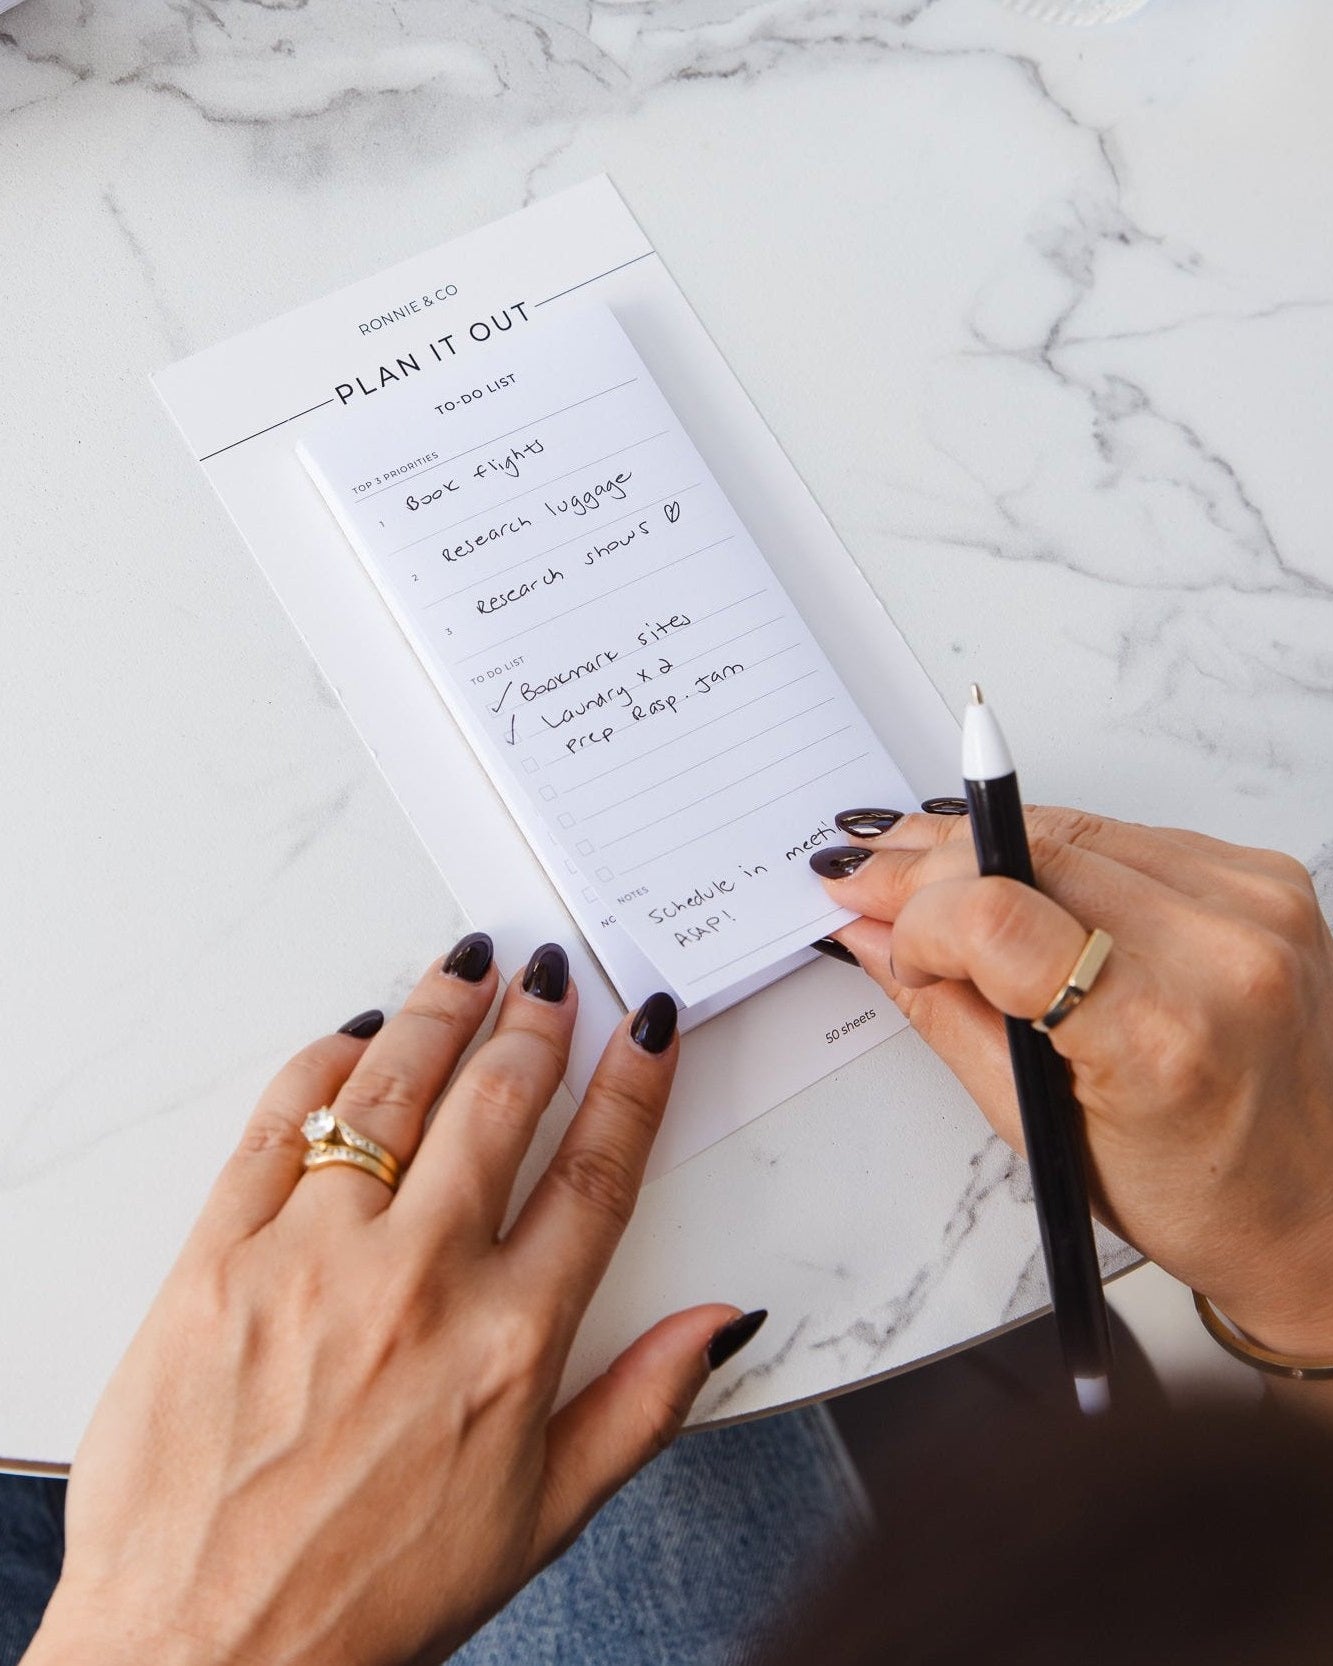 RONNIE & CO
PLAN IT OUT
TO-DO LIST
TOP 3 PRIORITIES
1 Book flights
2 Research luggage
3 Research shows ♡
TO DO LIST
✓ Bookmark sites
✓ Laundry x 2
prep Rasp. Jam
NOTES
Schedule in meeti
ASAP!
NO
50 sheets